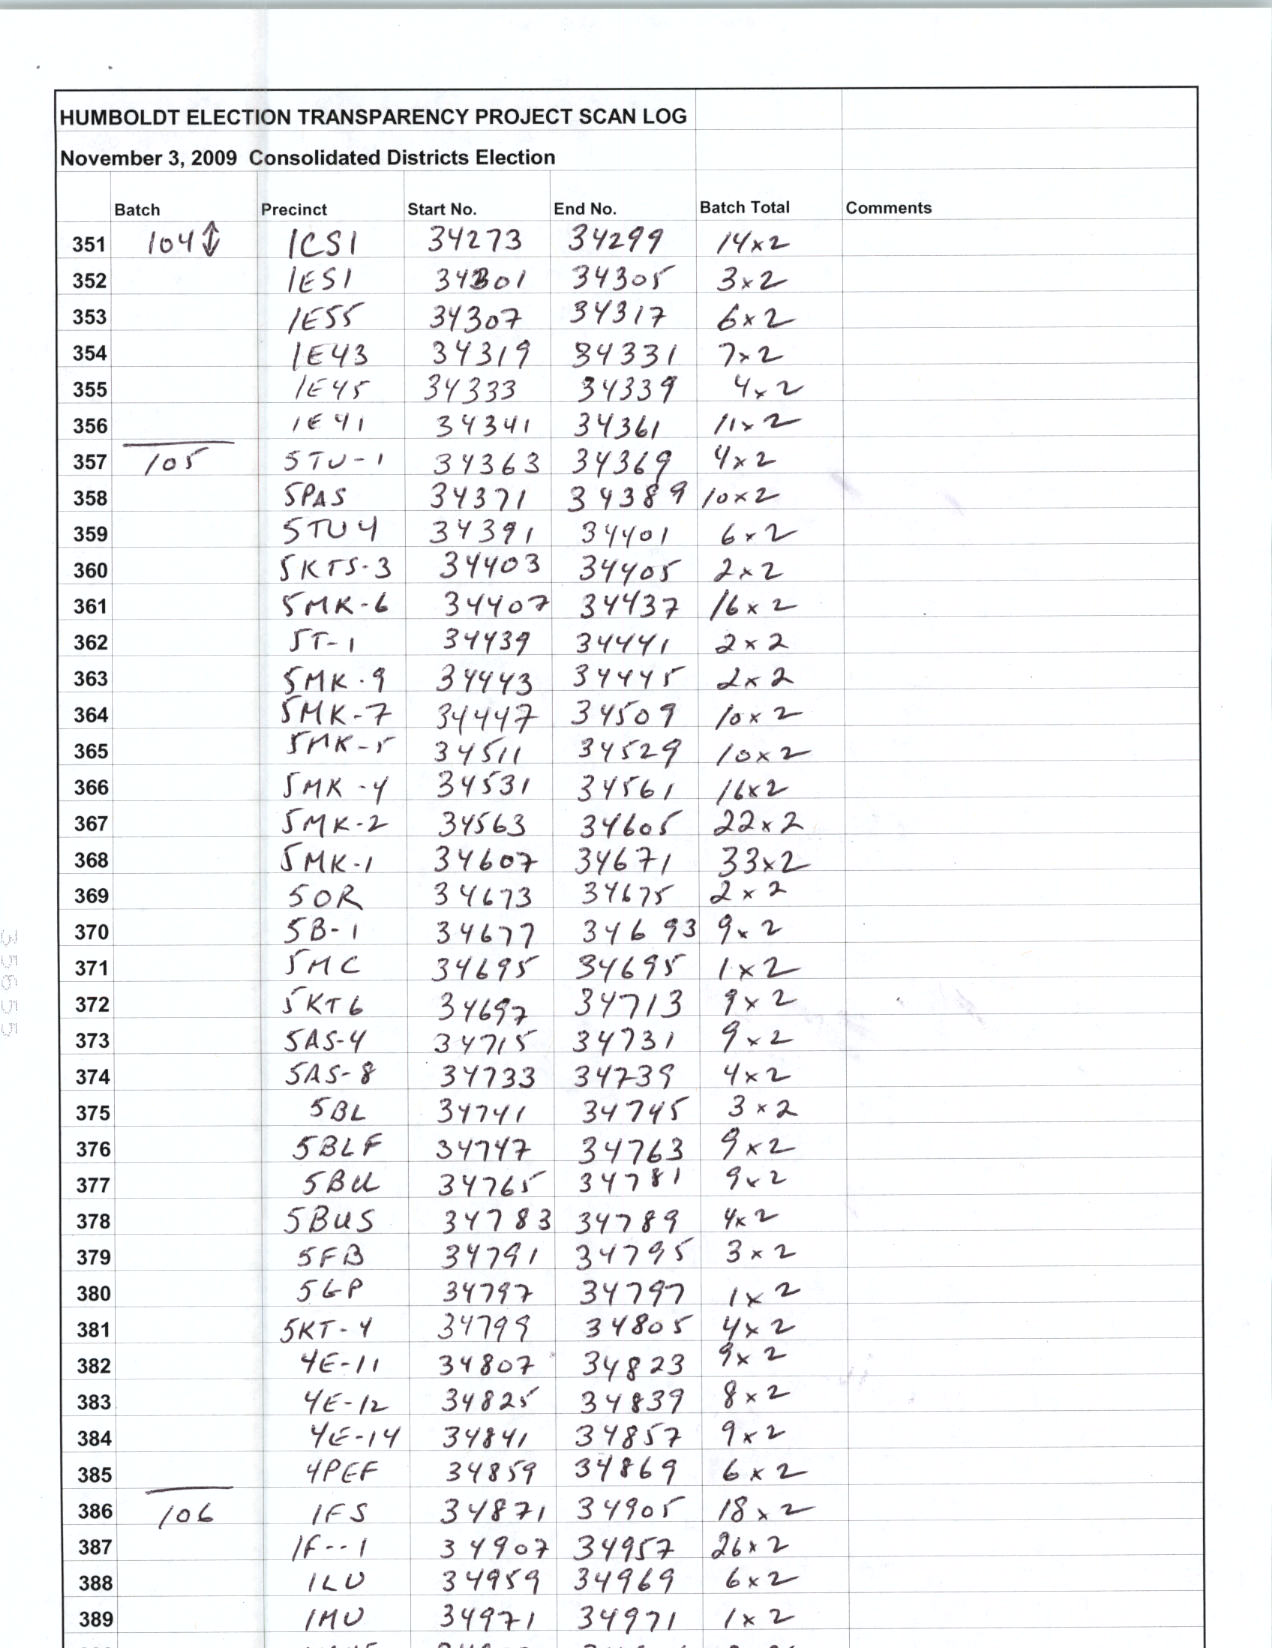 HUMBOLDT ELECTION TRANSPARENCY PROJECT SCAN LOG
November 3, 2009 Consolidated Districts Election
Batch Precinct Start No. End No. Batch Total Comments
351 104 ↕ 1CS1 34273 34299 14x2
352 1ES1 34301 34305 3x2
353 1ES5 34307 34317 6x2
354 1E43 34319 34331 7x2
355 1E45 34333 34339 4x2
356 1E41 34341 34361 11x2
357 105 5TU-1 34363 34369 4x2
358 5PAS 34371 34389 10x2
359 5TU4 34391 34401 6x2
360 5KTS-3 34403 34405 2x2
361 5MK-6 34407 34437 16x2
362 5T-1 34439 34441 2x2
363 5MK-9 34443 34445 2x2
364 5MK-7 34447 34509 10x2
365 5MK-5 34511 34529 10x2
366 5MK-4 34531 34561 16x2
367 5MK-2 34563 34605 22x2
368 5MK-1 34607 34671 33x2
369 5OR 34673 34675 2x2
370 5B-1 34677 34693 9x2
371 5MC 34695 34695 1x2
372 5KT6 34697 34713 9x2
373 5AS-4 34715 34731 9x2
374 5AS-8 34733 34739 4x2
375 5BL 34741 34745 3x2
376 5BLF 34747 34763 9x2
377 5BU 34765 34781 9x2
378 5BUS 34783 34789 4x2
379 5FB 34791 34795 3x2
380 5GP 34797 34797 1x2
381 5KT-4 34799 34805 4x2
382 4E-11 34807 34823 9x2
383 4E-12 34825 34839 8x2
384 4E-14 34841 34857 9x2
385 4PEF 34859 34869 6x2
386 106 1FS 34871 34905 18x2
387 1F--1 34907 34957 26x2
388 1LU 34959 34969 6x2
389 1MU 34971 34971 1x2
35655